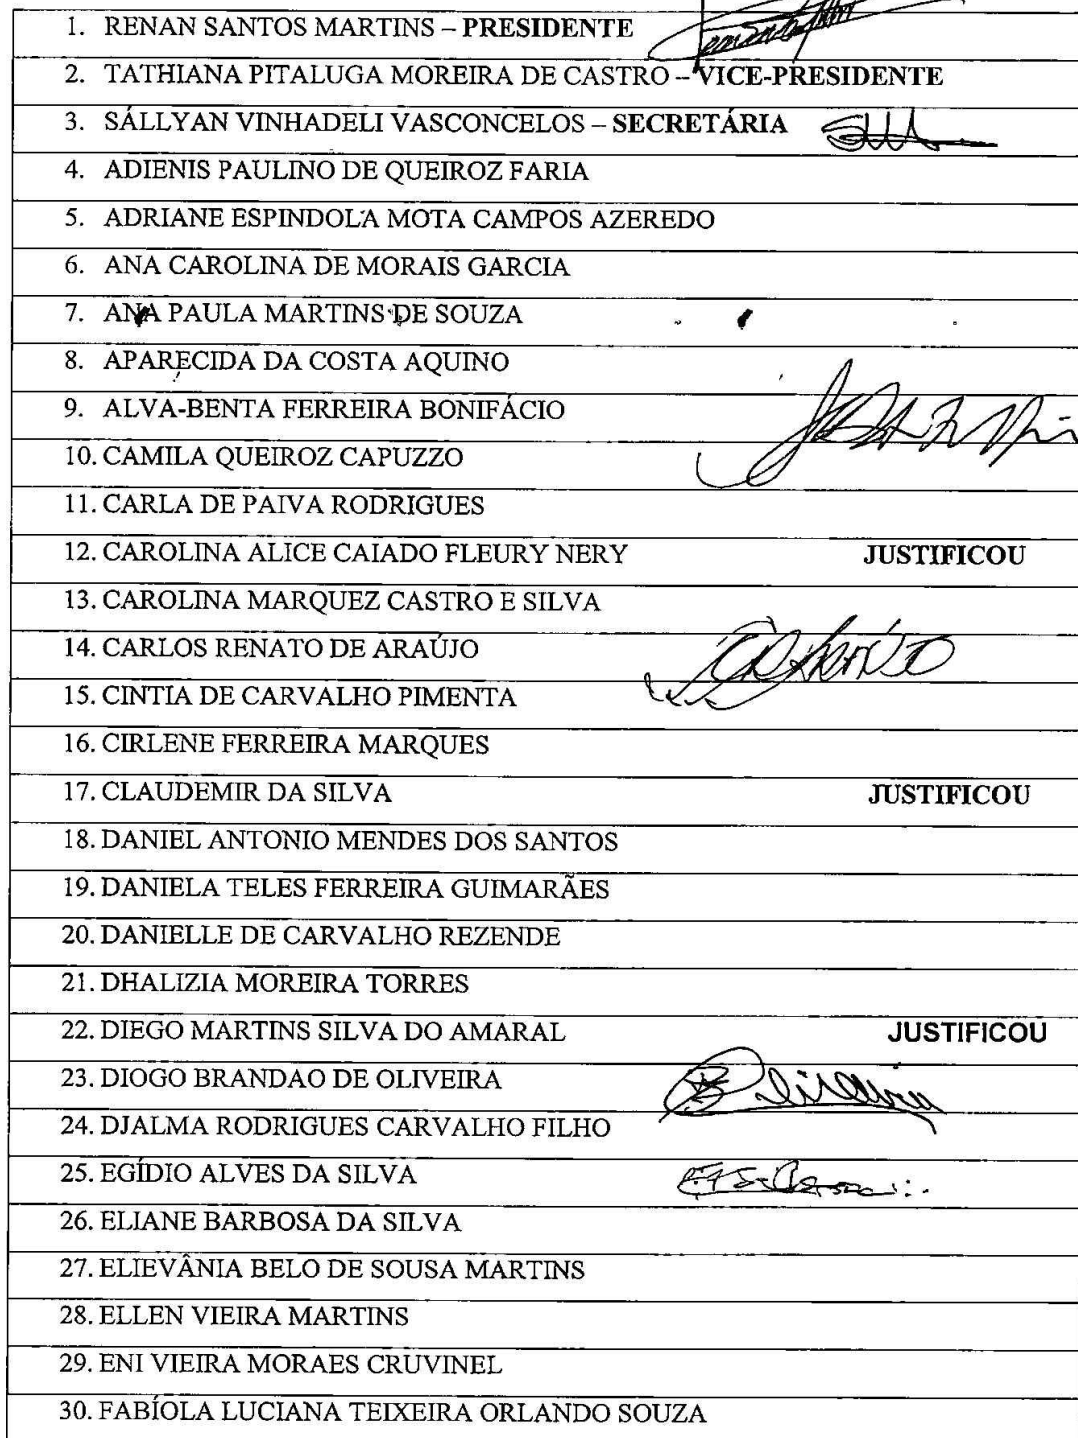 1. RENAN SANTOS MARTINS – PRESIDENTE
2. TATHIANA PITALUGA MOREIRA DE CASTRO – VICE-PRESIDENTE
3. SÁLLYAN VINHADELI VASCONCELOS – SECRETÁRIA
4. ADIENIS PAULINO DE QUEIROZ FARIA
5. ADRIANE ESPINDOLA MOTA CAMPOS AZEREDO
6. ANA CAROLINA DE MORAIS GARCIA
7. ANA PAULA MARTINS DE SOUZA
8. APARECIDA DA COSTA AQUINO
9. ALVA-BENTA FERREIRA BONIFÁCIO
10. CAMILA QUEIROZ CAPUZZO
11. CARLA DE PAIVA RODRIGUES
12. CAROLINA ALICE CAIADO FLEURY NERY JUSTIFICOU
13. CAROLINA MARQUEZ CASTRO E SILVA
14. CARLOS RENATO DE ARAÚJO
15. CINTIA DE CARVALHO PIMENTA
16. CIRLENE FERREIRA MARQUES
17. CLAUDEMIR DA SILVA JUSTIFICOU
18. DANIEL ANTONIO MENDES DOS SANTOS
19. DANIELA TELES FERREIRA GUIMARÃES
20. DANIELLE DE CARVALHO REZENDE
21. DHALIZIA MOREIRA TORRES
22. DIEGO MARTINS SILVA DO AMARAL JUSTIFICOU
23. DIOGO BRANDAO DE OLIVEIRA
24. DJALMA RODRIGUES CARVALHO FILHO
25. EGÍDIO ALVES DA SILVA
26. ELIANE BARBOSA DA SILVA
27. ELIEVÂNIA BELO DE SOUSA MARTINS
28. ELLEN VIEIRA MARTINS
29. ENI VIEIRA MORAES CRUVINEL
30. FABÍOLA LUCIANA TEIXEIRA ORLANDO SOUZA